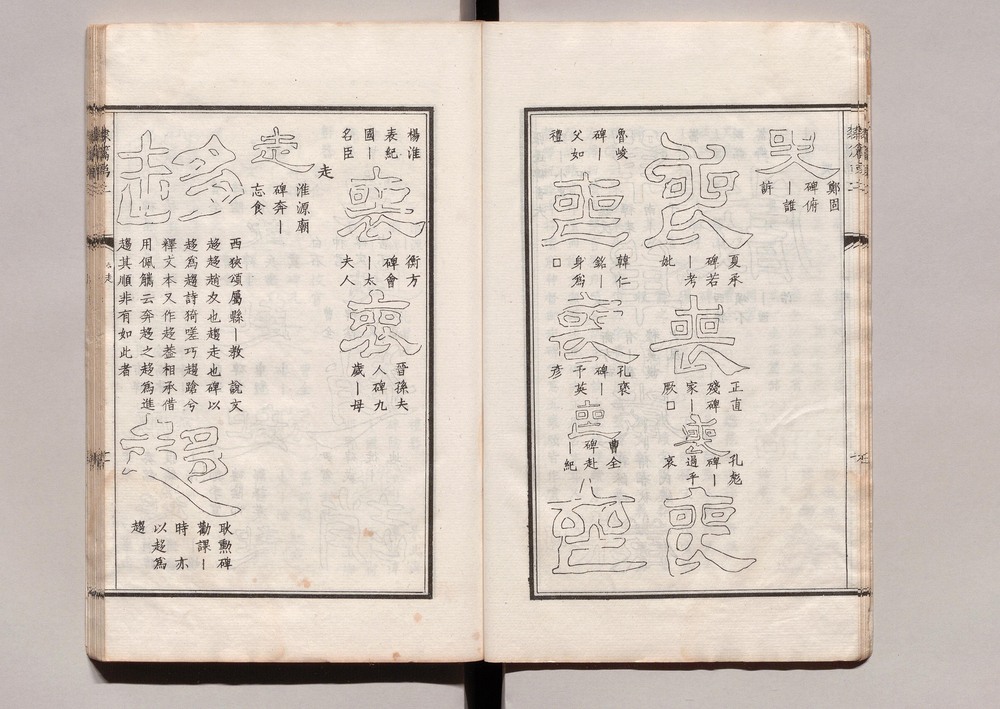 哭
鄭固
碑俯
｜誰
訴
喪
夏承
碑若
｜考
妣
喪
正直
殘碑
家｜
厥囗
喪
孔彪
碑｜
過乎
哀
喪
魯峻
碑｜
父如
禮
喪
韓仁
銘｜
身為
囗
喪
孔褒
碑｜
于英
彥
喪
曹全
碑赴
｜紀
喪
楊淮
表紀
國｜
名臣
喪
衡方
碑會
｜太
夫人
喪
晉孫夫
人碑九
歲｜母
走
走
淮源廟
碑奔｜
忘食
趍
西狹頌屬縣｜教 說文
趍趍趙夊也趨走也碑以
趍為趨詩猗嗟巧趨蹌兮
釋文本又作趍葢相承借
用佩觿云奔趍之趍為進
趨其順非有如此者
趍
耿勳碑
勸課｜
時 亦
以趍為
趨